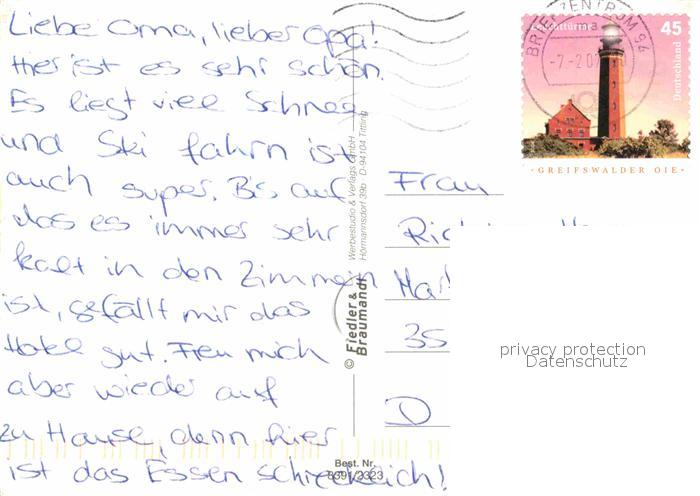 Liebe Oma, lieber Opa!
Hier ist es sehr schön.
Es liegt viel Schnee
und Ski fahrn ist
auch super. Bis auf
das es immer sehr
kalt in den Zimmern
ist, gefällt mir das
Hotel gut. Freu mich
aber wieder auf
zu Hause, denn hier
ist das Essen schrecklich!
© Fiedler & Braumandl
Werbestudio & Verlags GmbH
Hörmannsdorf 39b · D-94104 Tittling
Best. Nr.
8391/2323
BRIEFZENTRUM 94
a
Leuchttürme
45
Deutschland
·GREIFSWALDER OIE·
Frau
35
D
privacy protection
Datenschutz